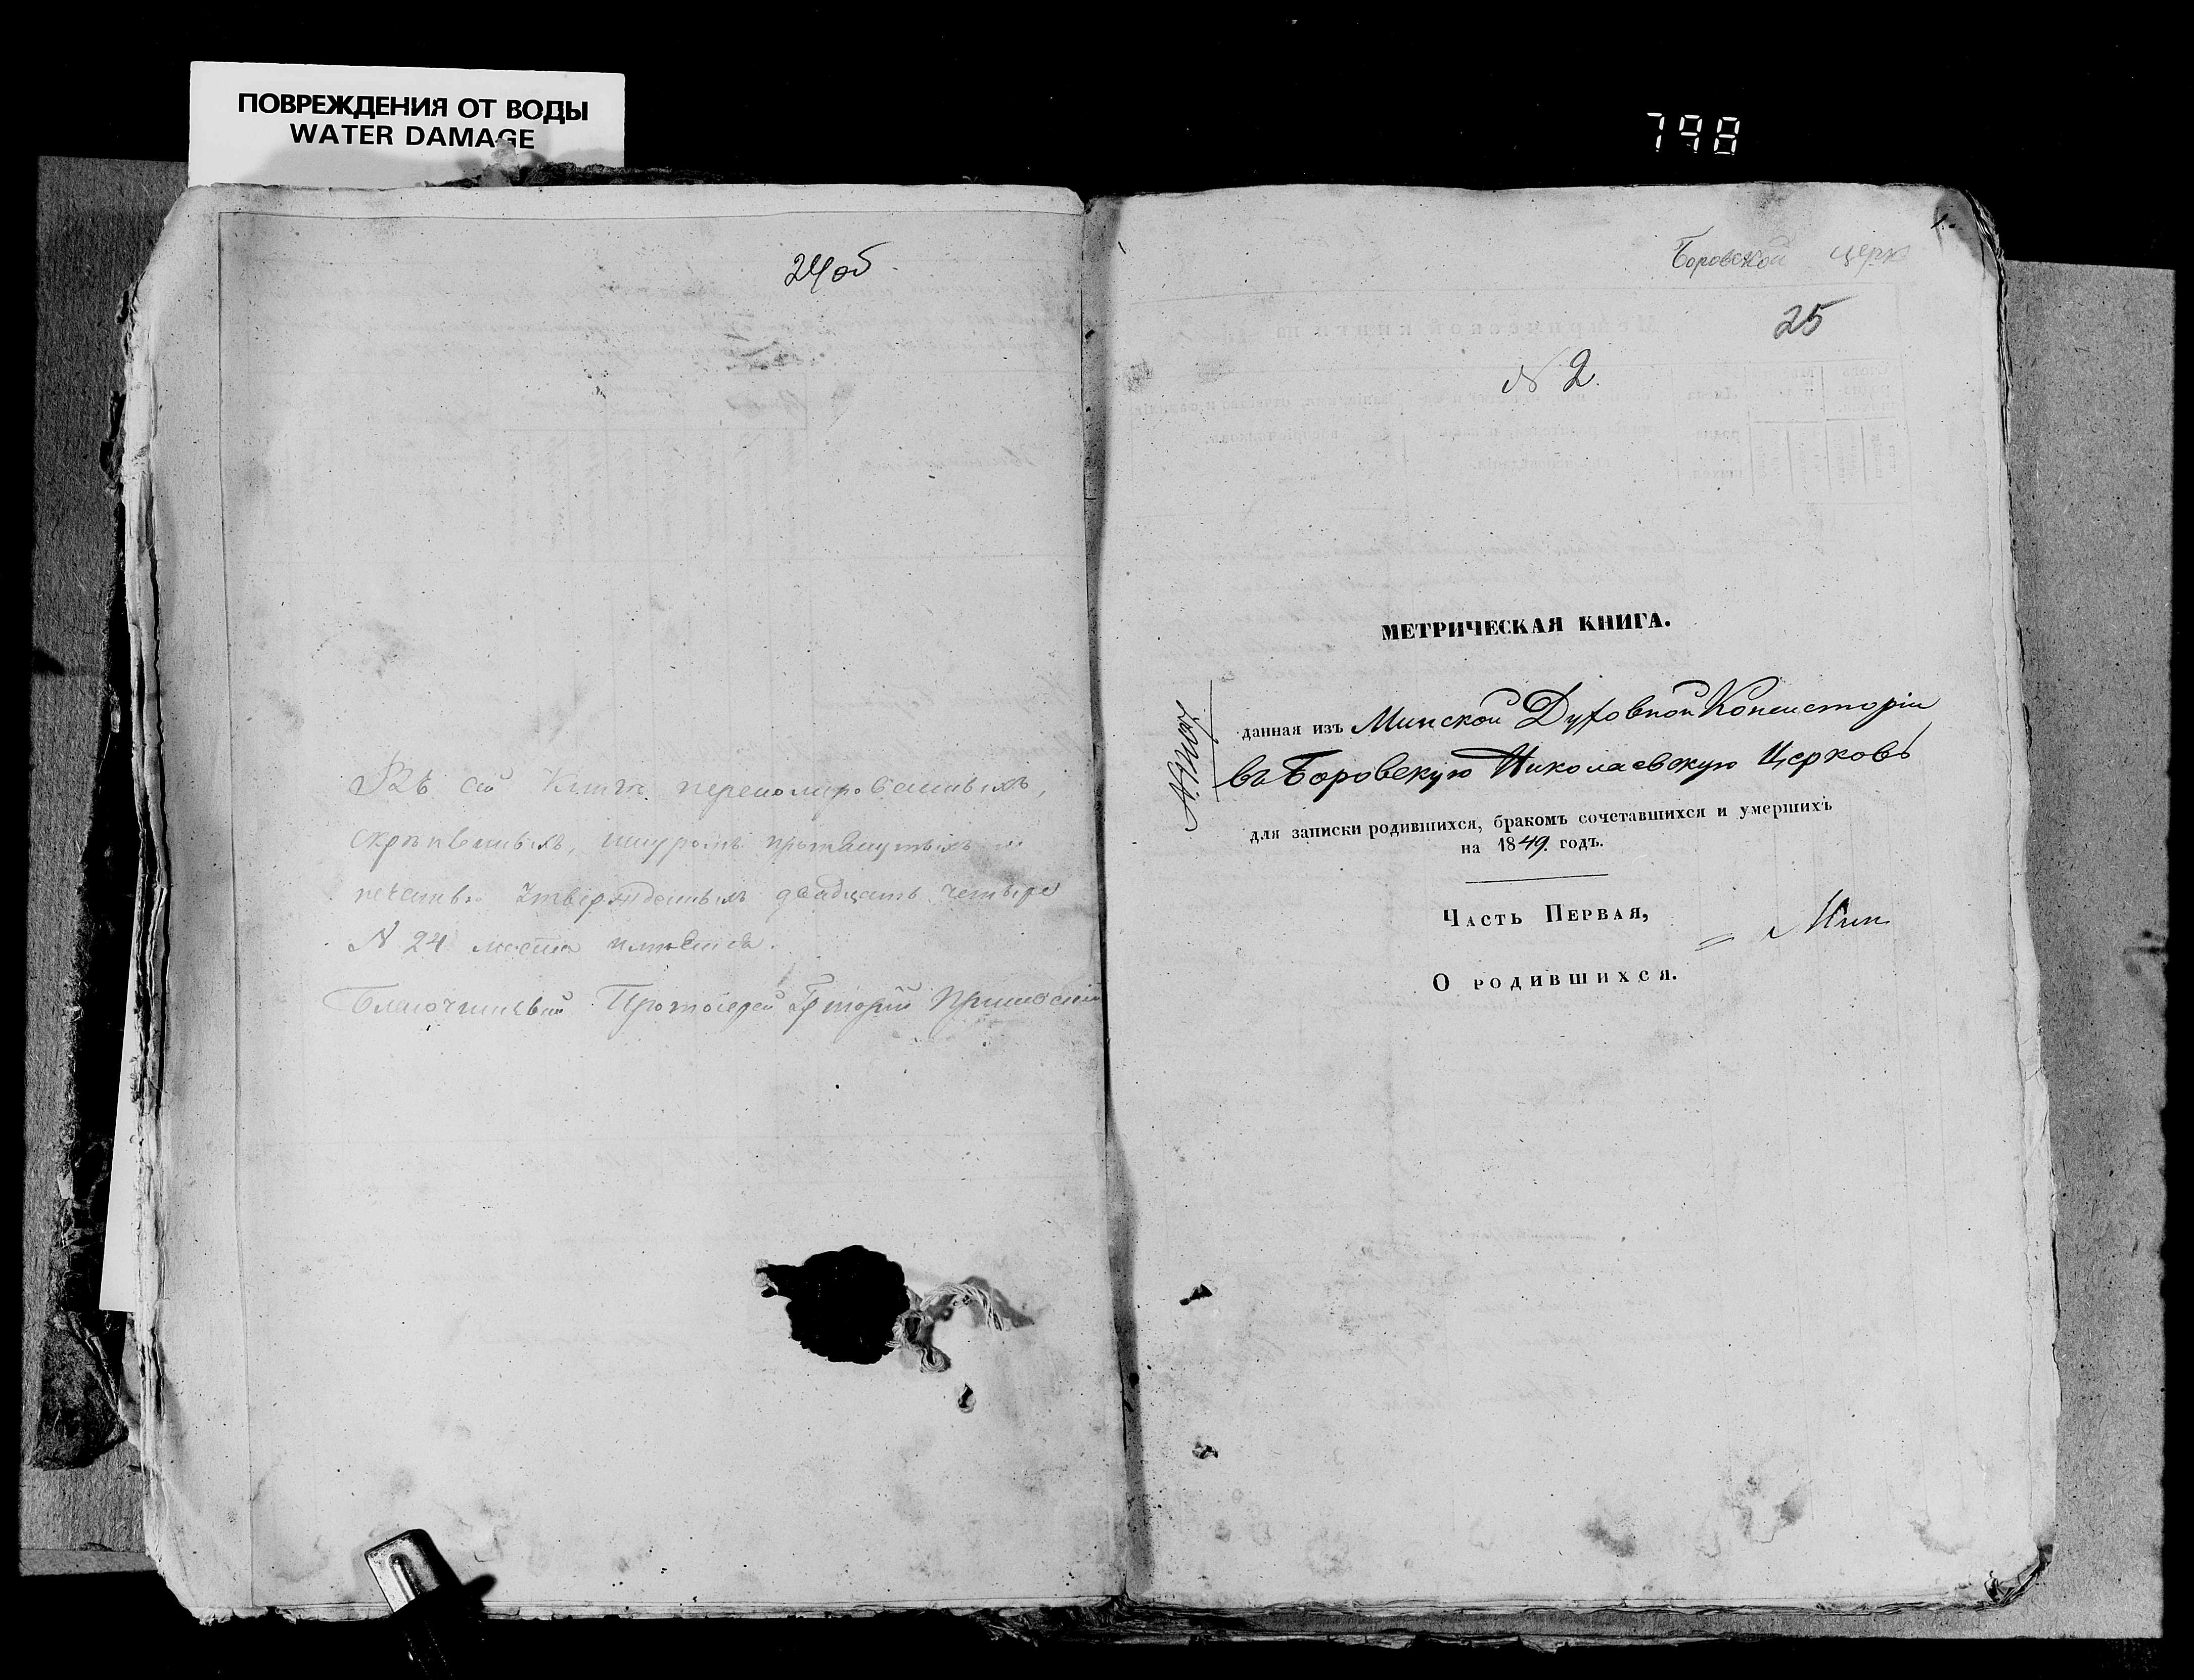 ПОВРЕЖДЕНИЯ ОТ ВОДЫ
WATER DAMAGE
798
24 об
Въ сей Книгѣ перенолированныхъ,
скрѣпленныхъ, шнуромъ протянутыхъ и
печатью утвержденныхъ двадцать четыре
N 24 листа
Благочинный Протоіерей Григорій
Боровской церк
25
N 2.
МЕТРИЧЕСКАЯ КНИГА.
данная изъ Минской Духовной Консисторіи
въ Боровскую Николаевскую Церковь
для записки родившихся, бракомъ сочетавшихся и умершихъ
на 1849. годъ.
Часть Первая,
Мин
О родившихся.